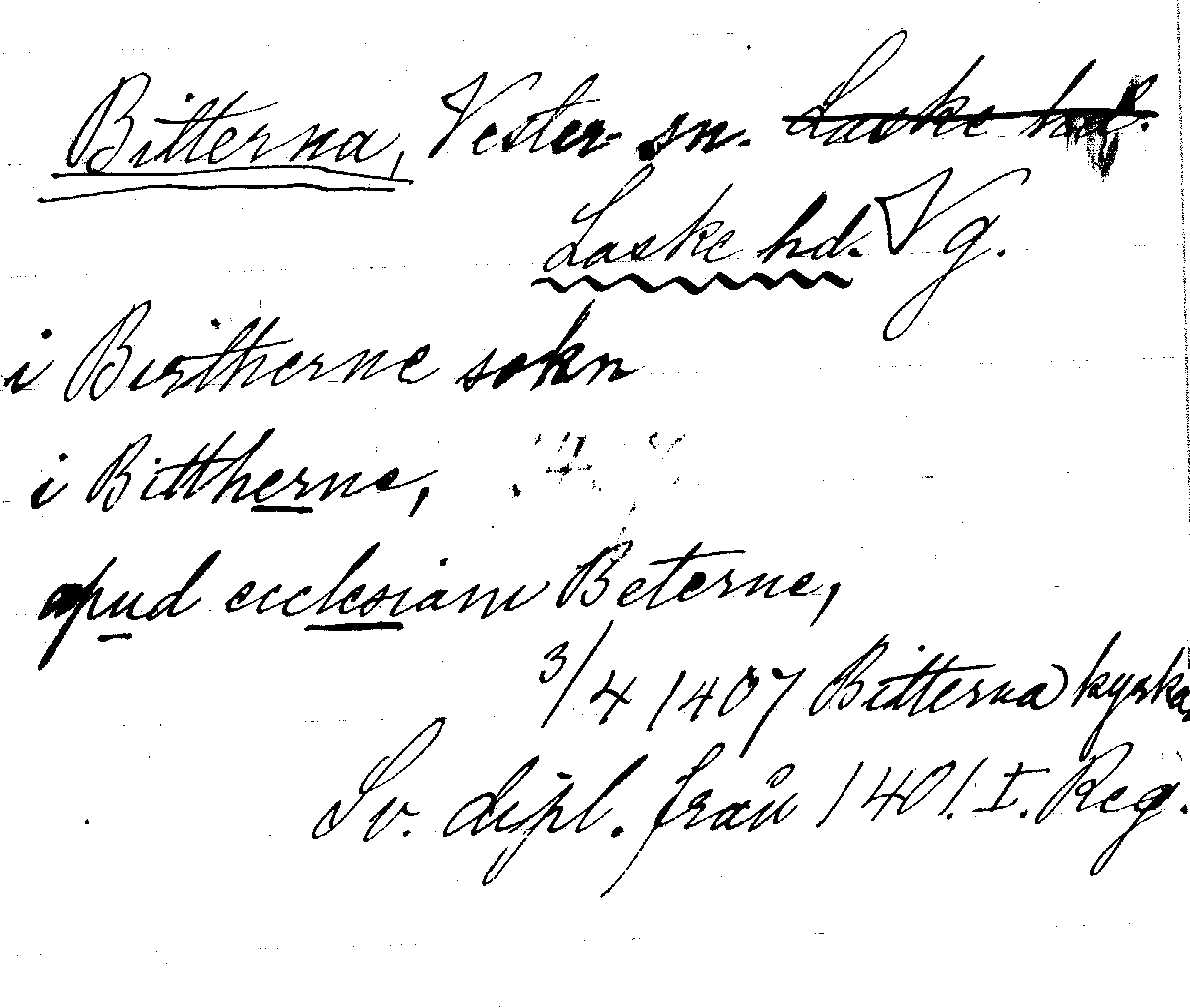 Bitterna, Vester- sn. Laske hd.
Laske hd. Vg.
i Birtherne sokn
i Bittherne,
apud ecclesiam Beterne,
3/4 1407 Bitterna kyrka,
Sv. dipl. från 1401. I. Reg.